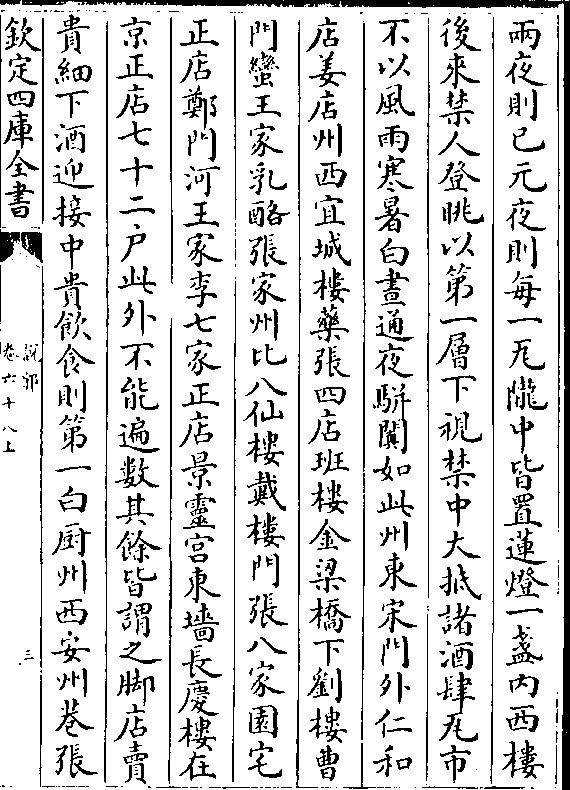 兩夜則已元夜則每一瓦隴中皆置蓮燈一盞内西樓
後來禁人登眺以第一層下視禁中大抵諸酒肆瓦市
不以風雨寒暑白晝通夜駢闐如此州東宋門外仁和
店姜店州西宜城樓藥張四店班樓金梁橋下劉樓曹
門蠻王家乳酪張家州北八仙樓戴樓門張八家園宅
正店鄭門河王家李七家正店景靈宫東墻長慶樓在
京正店七十二户此外不能遍數其餘皆謂之脚店賣
貴細下酒迎接中貴飲食則第一白厨州西安州巷張
欽定四庫全書
説郛
卷六十八上
三